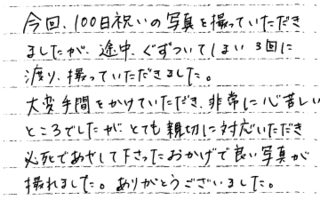 今回、100日祝いの写真を撮っていただき
ましたが、途中、ぐずついてしまい3回に
渡り、撮っていただきました。
大変手間をかけていただき、非常に心苦しい
ところでしたが、とても親切に対応いただき
必死であやして下さったおかげで良い写真が
撮れました。ありがとうございました。